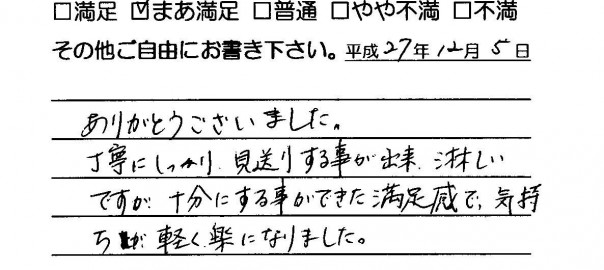 □満足 ☑まあ満足 □普通 □やや不満 □不満
その他ご自由にお書き下さい。平成27年12月5日
ありがとうございました。
丁寧にしっかり、見送りする事が出来、淋しい
ですが、十分にする事ができた満足感で、気持
ちが軽く、楽になりました。